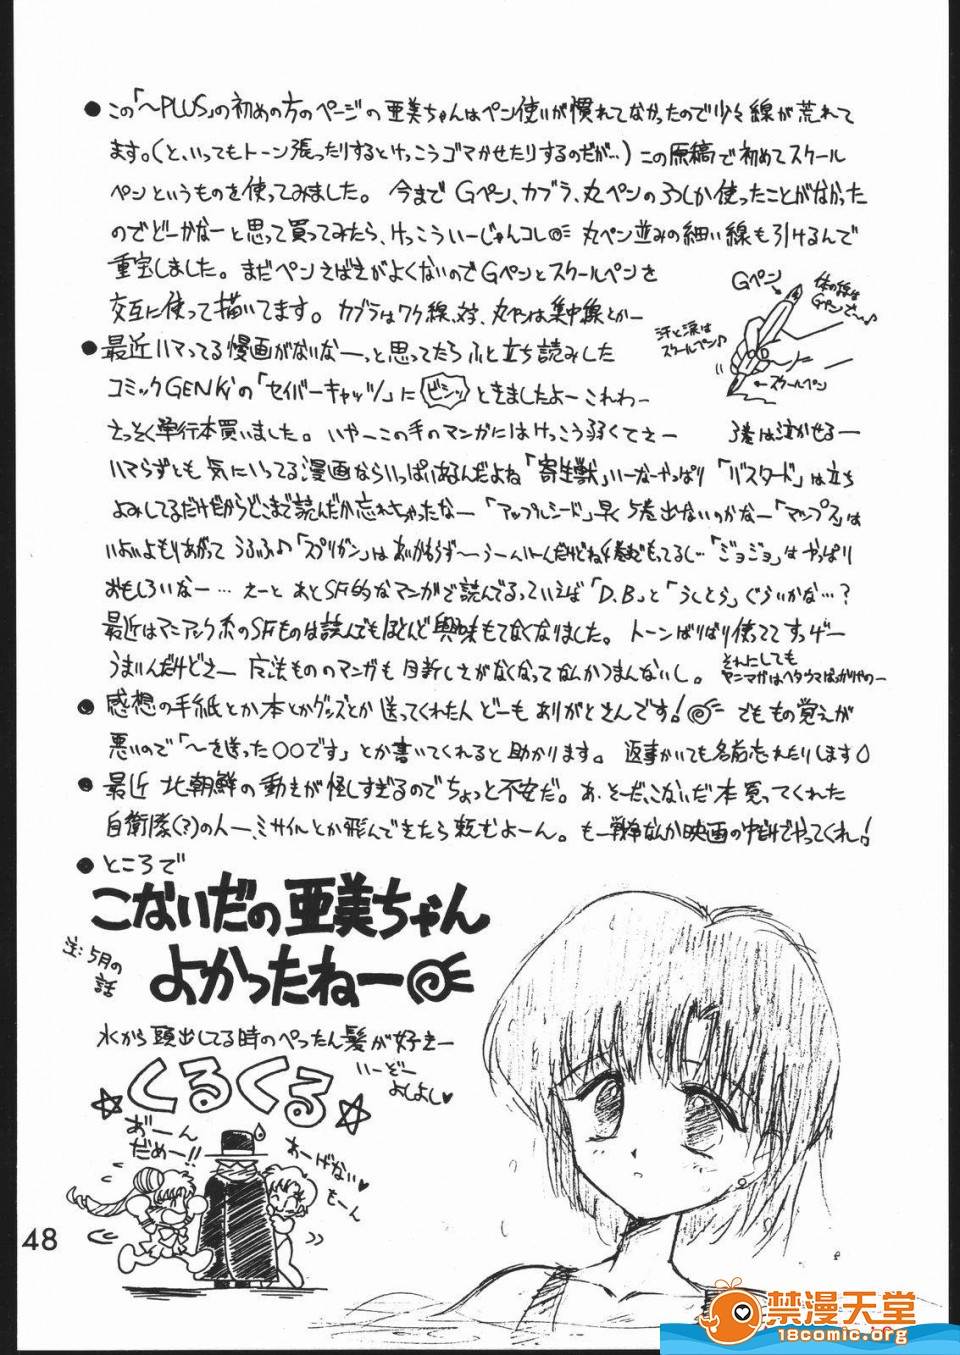 ●この「～PLUS」の初めの方のページの亜美ちゃんはペン使いが慣れてなかったので少々線が荒れて
ます。(と、いってもトーン張ったりするとけっこうゴマかせたりするのだが…)この原稿で初めてスクール
ペンというものを使ってみました。今までGペン、カブラ、丸ペンの3つしか使ったことがなかった
のでどーかなーと思って買ってみたら、けっこういーじゃんコレ 丸ペン並みの細い線も引けるんで
重宝しました。まだペンさばきがよくないのでGペンとスクールペンを
交互に使って描いてます。カブラはワク線、丸ペンは集中線とかー
Gペン
体の線は
Gペンさー♪
汗と涙は
スクールペン♪
←スクールペン
●最近ハマってる漫画がないなーっと思ってたらふと立ち読みした
コミックGENKiの「セイバーキャッツ」に ビシッ ときましたよーこれわー
さっそく単行本買いました。いやーこの手のマンガにはけっこう弱くてさー 3巻は泣かせるー
ハマらずとも気にいってる漫画ならいっぱいあるんだよね「寄生獣」いーなーやっぱり「バスタード」は立ち
よみしてるだけだからどこまで読んだか忘れちゃったなー「アップルシード」早く5巻出ないのかなー「マップス」は
いよいよもりあがって うふふ♪「スプリガン」はあいかわらず～うーんいーんだけどね 「ジョジョ」はやっぱり
おもしろいなー…えーと あとSF的なマンガで読んでるっていえば「D.B」と「うしとら」ぐらいかな…?
最近はマニアック系のSFものは読んでもほとんど興味もてなくなりました。トーンばりばり使っててすっげー
うまいんだけどさー 魔法もののマンガも目新しさがなくなってなんかつまんないし。
それにしても
ヤンマガはヘタウマばっかりやのー
●感想の手紙とか本とかグッズとか送ってくれた人 どーもありがとさんです! でももの覚えが
悪いので「～を送った○○です」とか書いてくれると助かります。返事かいても名前忘れたりします
●最近 北朝鮮の動きが怪しすぎるのでちょっと不安だ。あ、そーだ、こないだ本買ってくれた
自衛隊(?)の人ー、ミサイルとか飛んできたら頼むよーん。もー戦争なんか映画の中だけでやってくれ!
●ところで
こないだの亜美ちゃん
よかったねー
注:5月の
話
水から頭出してる時のぺったん髪が好きー
いーどー
よしよし♥
☆くるくる☆
あ゛ーん
だめー!!
あーげない♥
もーん
48
禁漫天堂
18comic.org